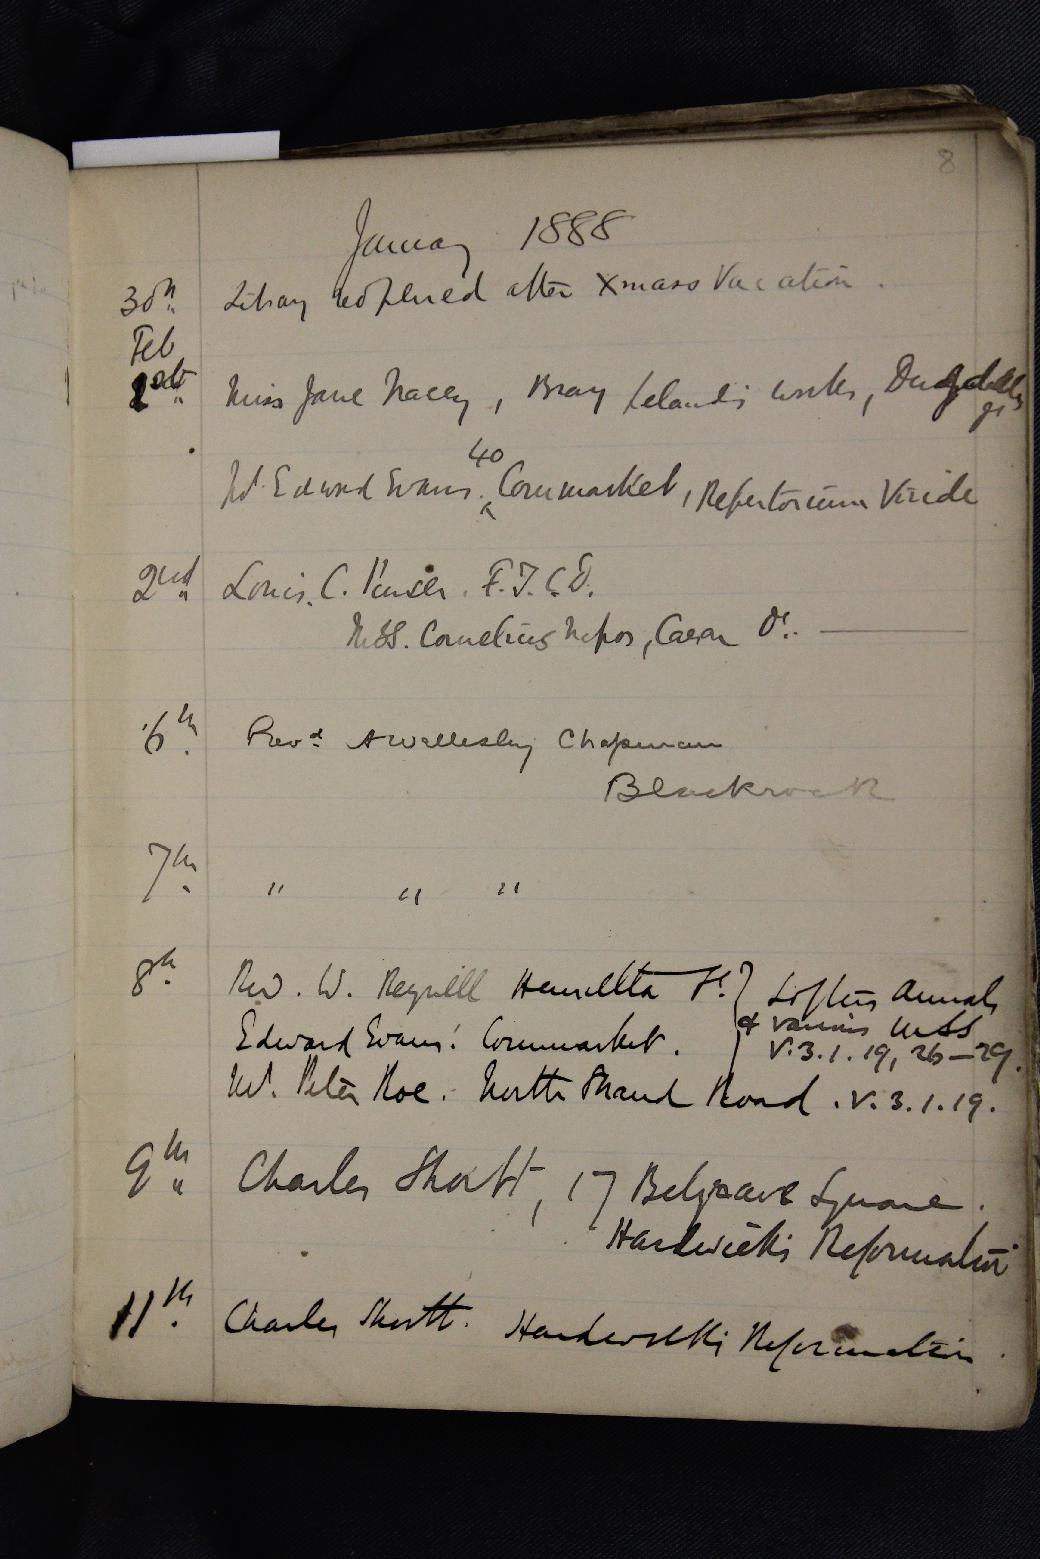 8
January 1888
30th Library reopened after Xmass Vacation.
Feb
1st Miss Jane Nacey, Bray Leland's works,
40
Mr. Edward Evans. Cornmarket, Repertorium Viride
2nd Louis. C. Purser. F.T.C.D.
MSS. Cornelius Nepos, Caesar &c.
6th Revd A Wellesley Chapman
Blackrock
7th " " "
8th Rev. W. Reynell Henrietta St. } Loftus Annals
& various MSS
Edward Evans. Cornmarket. V.3.1.19, 26-29.
Mr. Peter Roe. North Strand Road. V.3.1.19.
9th Charles Shortt, 17 Belgrave Square.
Hardwick's Reformation
11th Charles Shortt. Hardwick's Reformation.